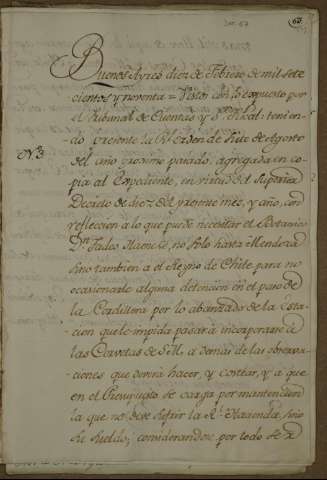 Doc. 67
67
Buenos Ayres diez de Febrero de mil sete
cientos y noventa = Vistos con lo expuesto por
el Tribunal de Cuentas y Sor Fiscal: tenien-
Nº3
do presente la Rl. orden de siete de Agosto
del año proximo pasado, agregada en co-
pia al Expediente, en virtud del Superior
Decreto de diez del presente mes, y año, con
reflección a lo que puede necesitar el Botanico
Dn Tadeo Haencke, no solo hasta Mendoza
sino tambien a el Reyno de Chile para no
ocasionarle alguna detencion en el paso de
la Cordillera por lo abanzado de la Esta-
cion que le impida pasar á incorporarse á
las Corvetas de S.M. a demas de las observa-
ciones que deverá hacer, y costear, y a que
en el Presupuesto se carga por mantencion
la que no deve sufrir la Rl. Hazienda, sino
su sueldo; considerandose por todo